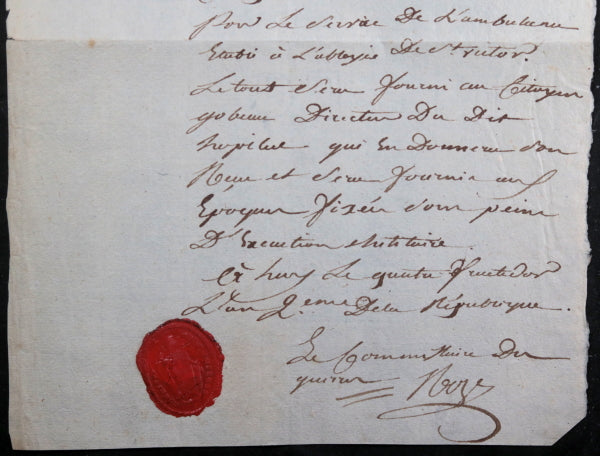 Pour Le Service De L'ambulance
Etabli à L'abbeyie De St victor.
Le tout Sera fourni au Citoyen
gobeau Directeur Du Dit
hopital qui En Donnera Son
Recu et Sera fournie aux
Epoques fixées Sous peine
D'Execution Militaire.
à huy Le quatre fructidor
L'an 2.eme De la République.
Le Commissaire Du